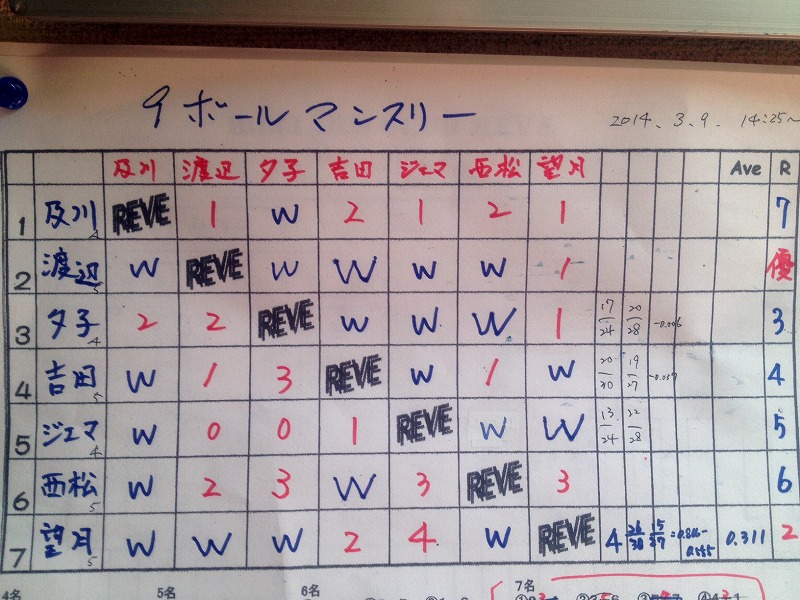 9ボールマンスリー
2014.3.9. 14:25~
及川 渡辺 夕子 吉田 ジェマ 西松 望月 Ave R
1 及川 4 REVE 1 W 2 1 2 1 7
2 渡辺 5 W REVE W W W W 1 優
3 夕子 4 2 2 REVE W W W 1 17/24 20/28 -0.006 3
4 吉田 5 W 1 3 REVE W 1 W 20/30 19/27 -0.037 4
5 ジェマ 4 W 0 0 1 REVE W W 13/24 22/28 5
6 西松 5 W 2 3 W 3 REVE 3 6
7 望月 5 W W W 2 4 W REVE 4 26/30 15/27 0.311 2
4名 5名 6名 7名